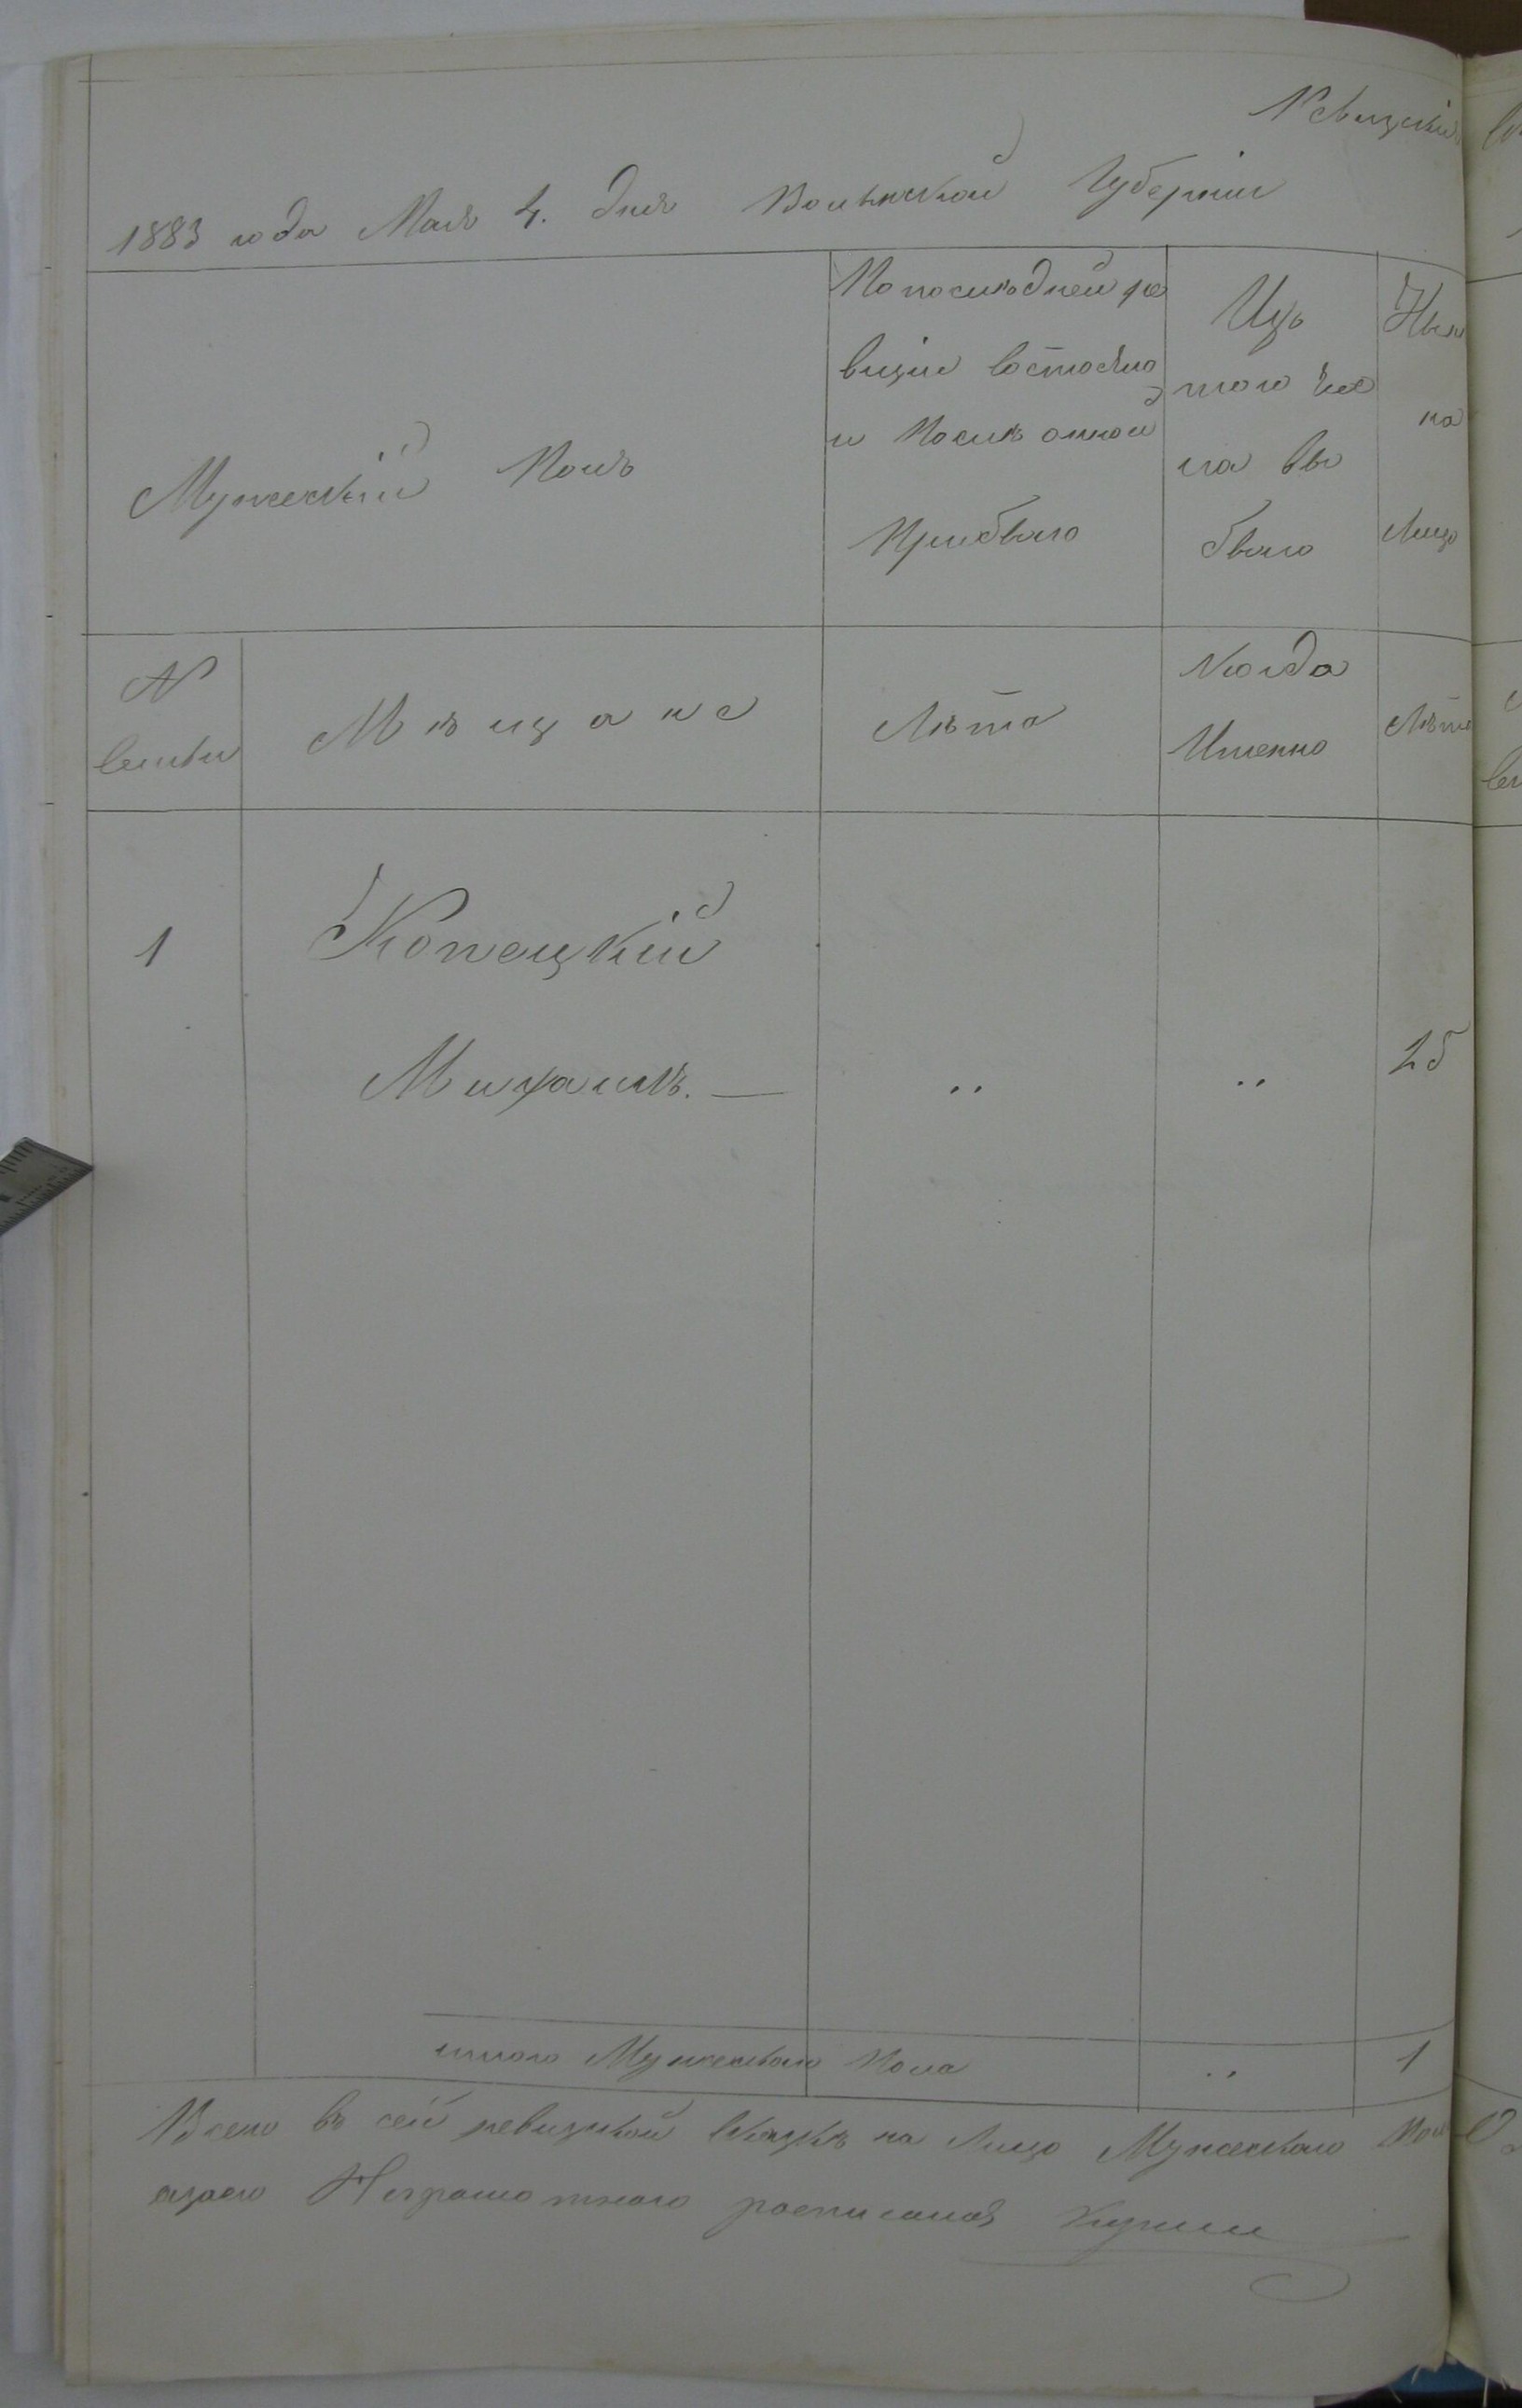 Ревизская
1883 года Мая 4. дня Волынской Губернии
Мужескій Полъ
По последней ре
визіи состояло
и После оной
Прибыло
Изъ
того чис
ла вы
было
Нын
на
Лицо
№
семьи
Мѣщане
Лѣта
Когда
Именно
Лѣта
1
Копецкій
Михаилъ. —
..
..
25
итого Мужескаго Пола
..
1
Всего въ сей ревизкой сказкѣ на Лицо Мужескаго Пол
Неграмотнаго росписался